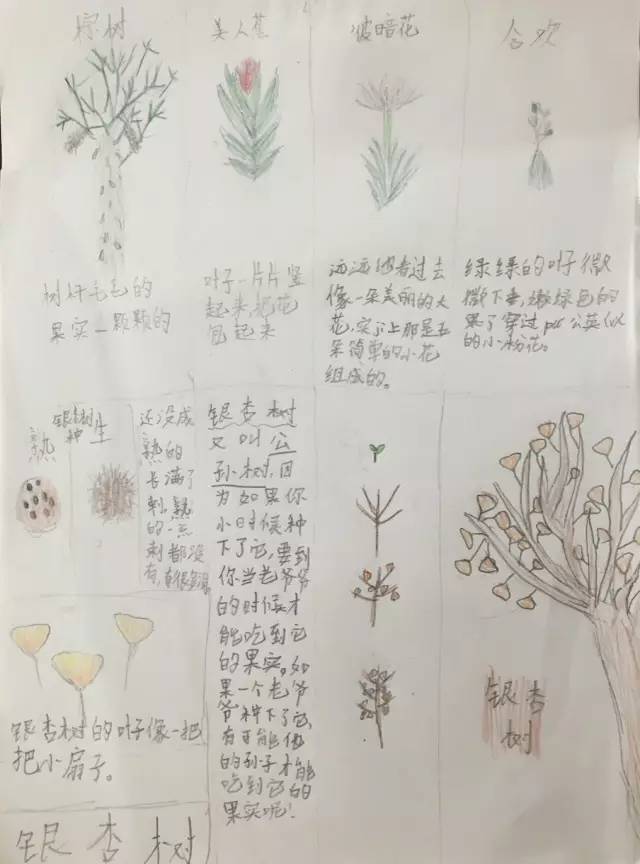 棕树
美人蕉
彼暗花
合欢
树杆毛毛的
果实一颗颗的
叶子一片片竖
起来,把花
包起来
远远地看过去
像一朵美丽的大
花,实了上那是五
朵简单的小花
组成的。
绿绿的叶子微
微下垂,嫩绿色的
果了穿过 公英似
的小粉花。
银杏树
种
熟
生
还没成
熟的
长满了
刺,熟
的一点
刺都没
有,
银杏树
又叫公
孙树,因
为如果你
小时候种
下了它,要到
你当老爷爷
的时候才
能吃到它
的果实。如
果一个老爷
爷种下了它,
有可能他
的孙子才能
吃到它的
果实呢!
银杏树的叶子像一把
把小扇子。
银杏
树
银杏树